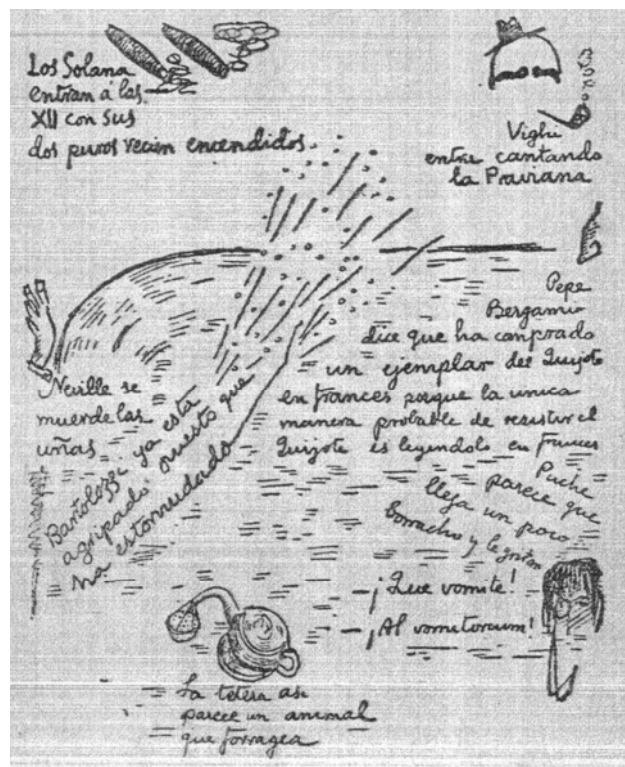 Los Solana
entran á las
XII con sus
dos puros recien encendidos.
Vighi
entre cantando
la Praviana
Pepe
Bergamin
dice que ha comprado
un ejemplar del Quijote
en frances porque la unica
manera probable de resistir el
Quijote es leyendolo en frances
Neville se
muerde las
uñas
Bartolozzi ya esta
agripado puesto que
ha estornudado
Puche
parece que
llega un poco
borracho y le gritan
—¡Que vomite!
—¡Al vomitorium!
La tetera asi
parece un animal
que forragea